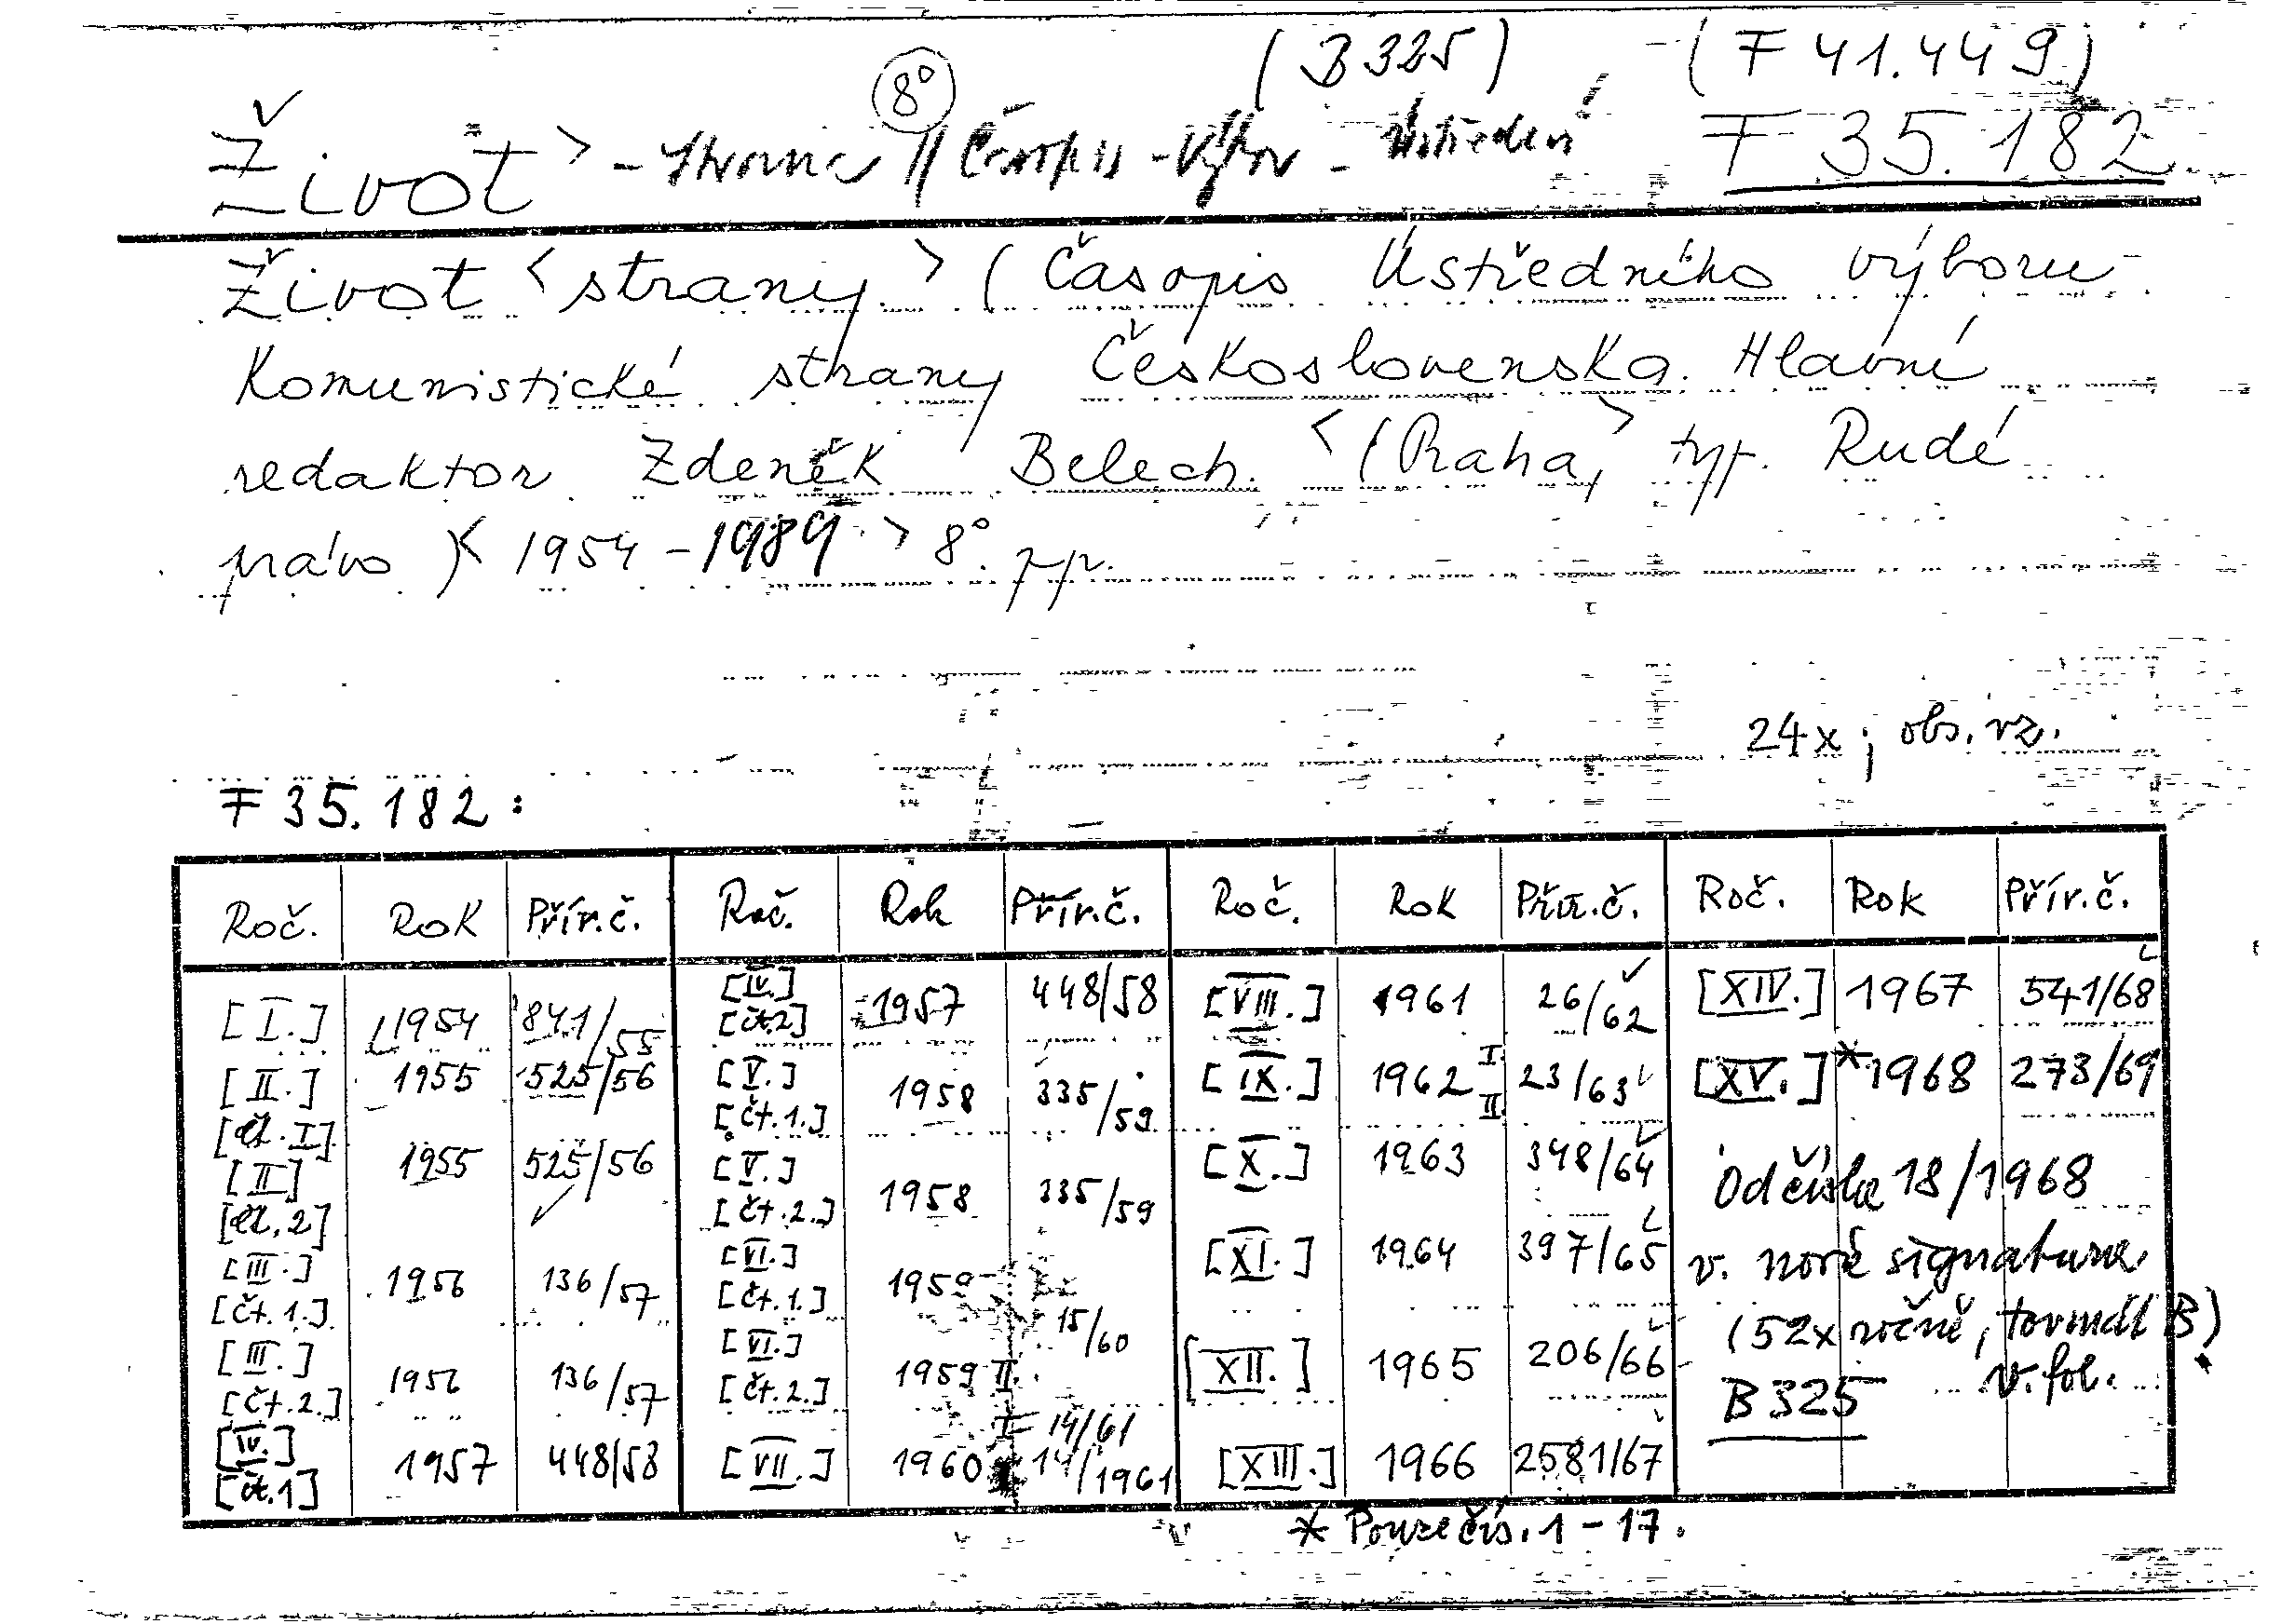 (B 325) (F 41.449)
8°
Život > - strana // Časopis - Výbor - Ústřední F 35.182
Život <strany> (Časopis Ústředního výboru
Komunistické strany Československa. Hlavní
redaktor Zdeněk Belech. <(Praha,> typ. Rudé
právo)< 1954 - 1989 > 8°. pp.
24x; obs. vz.
F 35.182:
Roč. Rok Přír.č. Roč. Rok Přír.č. Roč. Rok Přír.č. Roč. Rok Přír.č.
[I.] 1954 841/55 [IV.] [čt.2] 1957 448/58 [VIII.] 1961 26/62 [XIV.] 1967 541/68
[II.] [čt. I] 1955 525/56 [V.] [čt.1.] 1958 335/59 [IX.] 1962 I. II. 23/63 [XV.]* 1968 273/69
[II] [čt. 2] 1955 525/56 [V.] [čt.2.] 1958 335/59 [X.] 1963 348/64 Od čísla 18/1968
[III.] [čt.1.] 1956 136/57 [VI.] [čt.1.] 1959 15/60 [XI.] 1964 397/65 v. nové signatura
[III.] [čt.2.] 1956 136/57 [VI.] [čt.2.] 1959 II. [XII.] 1965 206/66 (52x ročně, formát B)
v. fol.
B 325
[IV.] [čt.1] 1957 448/58 [VII.] 1960 I 14/61 14/1961 [XIII.] 1966 2581/67
* Pouze čís. 1 - 17.